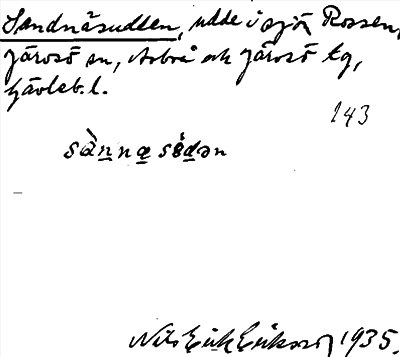 Sandnäsudden, udde i sjön Rossen,
Järvsö sn, Arbrå och Järvsö tg,
Gävleb. l.
143
sànnæsédən
Nils Erik Eriksson 1935.